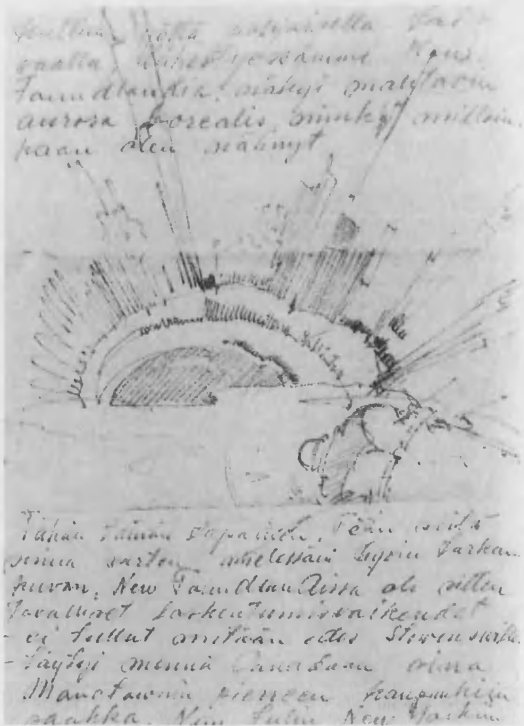 sitten että pohjoisella
vaalta lähestyessämme New
Foundlandia, näkyi mahtavin
aurora borealis minkä milloin-
kaan olen nähnyt
Tähän tämän tapainen. Tein
sinua varten mielessäni hyvin tarkan
kuvan. New Foundlandissa oli sitten
tavalliset tarkentumisvaikeudet
- ei tullut mitään edes
- täytyi mennä Canadaan aina
Monctownin pieneen kaupunkiin
saakka. Niin tulin New Yorkiin